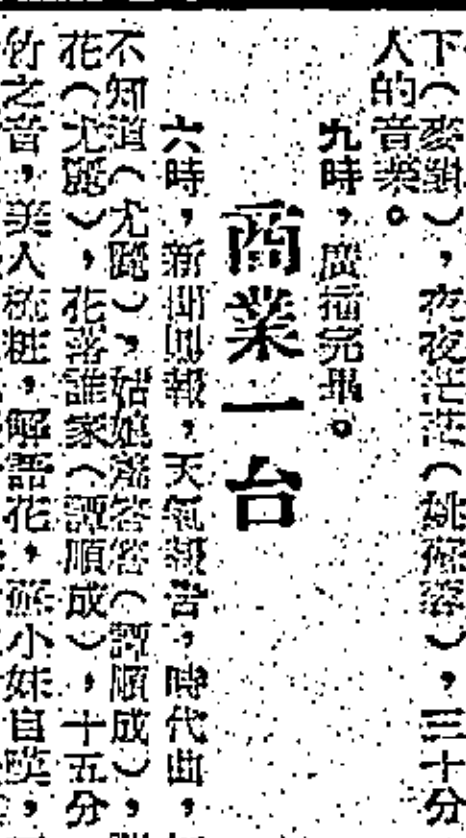 下（麥類），夜夜茫茫（姚蓉），三十分
人的音樂。
九時，廣播完畢。
商業一台
六時，新聞回報，天氣報告，時代曲，
不知道（尤麗），姑娘答答（譚順成），
花（尤麗），花落誰家（譚順成），十五分
竹之音，美人梳粧，解語花，蘇小妹自嘆，